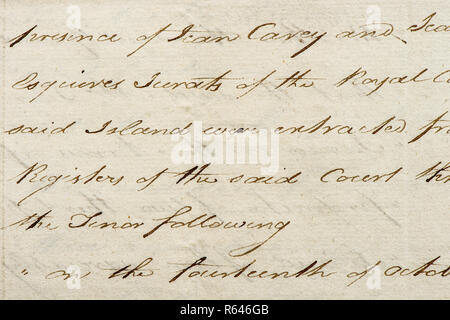 presence of Jean Carey and Jea
Esquires Jurats of the Royal C
said Island were extracted fr
Registers of the said Court th
the Tenor following
" on the fourteenth of Octo
alamy
alamy
Image ID: R646GB
www.alamy.com